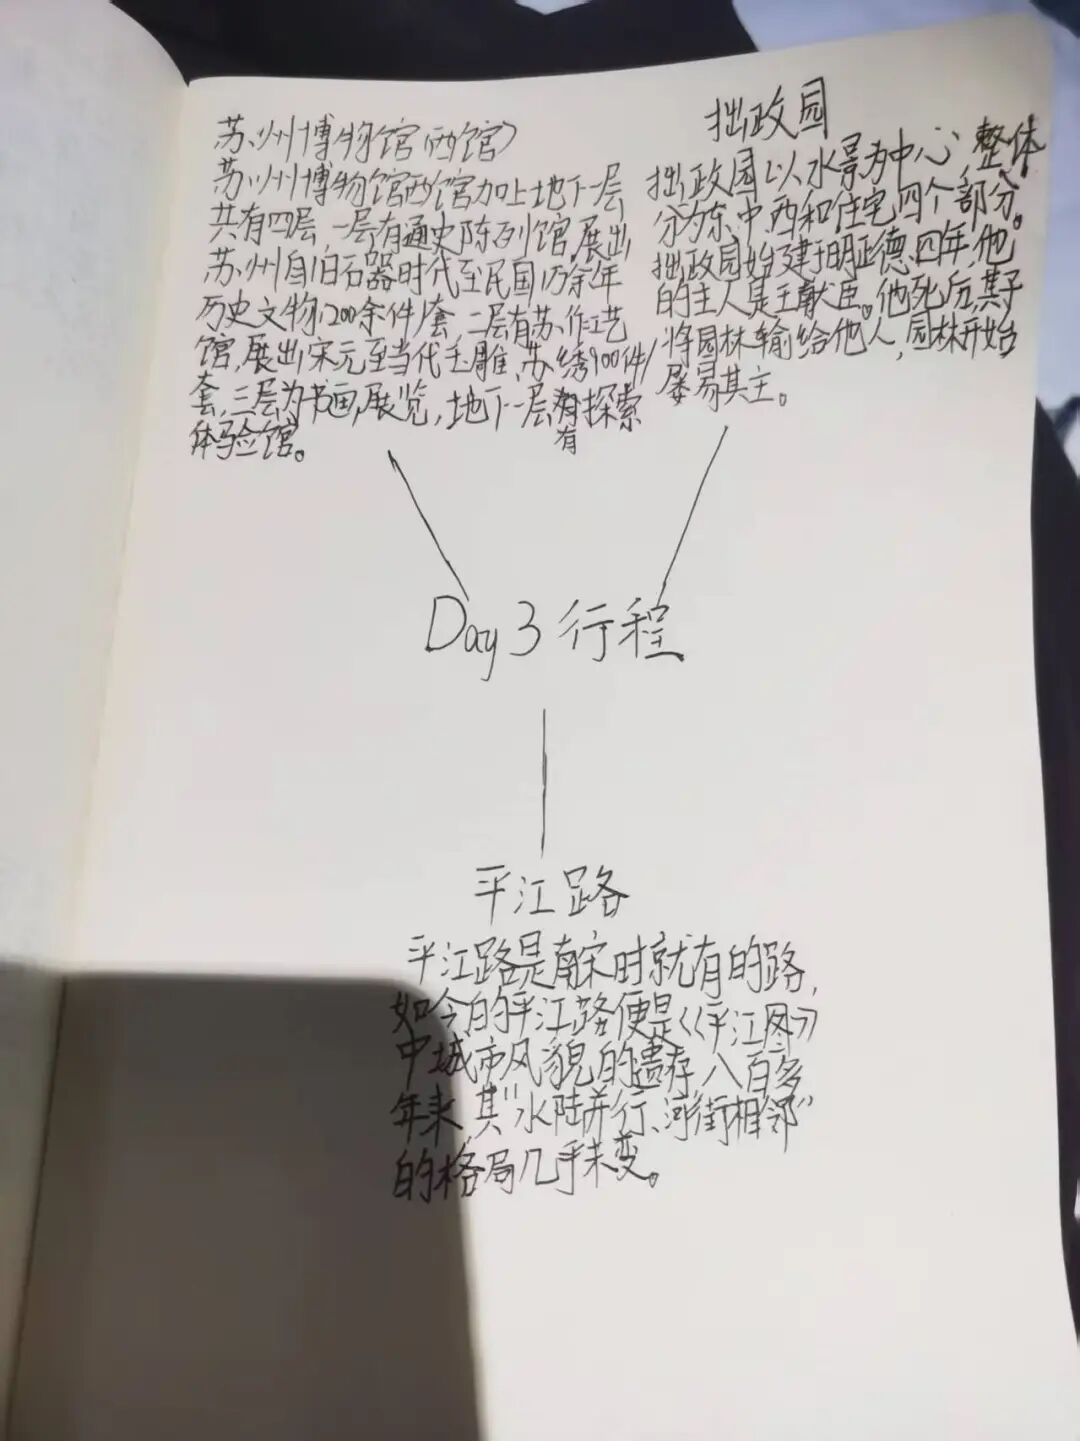 苏州博物馆(西馆)
苏州博物馆西馆加上地下一层
共有四层,一层有通史陈列馆,展出
苏州自旧石器时代至民国1万余年
历史文物1200余件/套,二层有苏作工艺
馆,展出宋元至当代玉雕、苏绣900件/
套,三层为书画展览,地下一层有探索
体验馆。
拙政园
拙政园以水景为中心,整体
分为东、中、西和住宅四个部分。
拙政园始建于明正德四年,他
的主人是王献臣。他死后,其子
将园林输给他人,园林开始
屡易其主。
Day 3 行程
平江路
平江路是南宋时就有的路,
如今的平江路便是《平江图》
中城市风貌的遗存,八百多
年来,其“水陆并行、河街相邻”
的格局几乎未变。